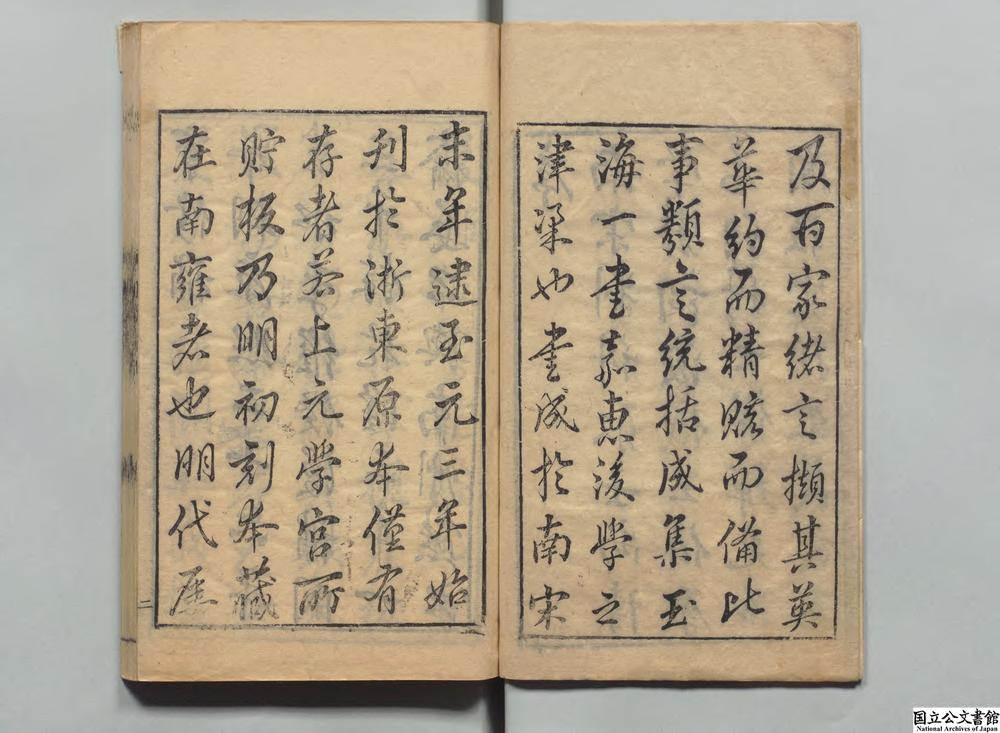 及百家緒言擷其英
華約而精賅而備比
事類言統括成集玉
海一書嘉惠後學之
津梁也書成於南宋
末年逮至元三年始
刊於浙東原本僅有
存者若上元學宮所
貯板乃明初刻本藏
在南雍者也明代屢
二
国立公文書館
National Archives of Japan